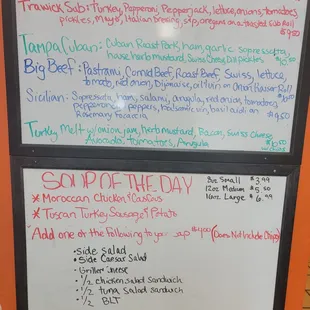 Trawick Sub: Turkey, Pepperoni, Pepperjack, lettuce, onions, tomatoes,
pickles, Mayo, Italian dressing, s+p, oregano on a toasted Sub Roll
$9.50
Tampa Cuban: Cuban Roast Pork, ham, garlic sopressetta,
house herb mustard, Swiss Cheese, Dill pickles
Big Beef: Pastrami, Corned Beef, Roast Beef, Swiss, lettuce,
tomato, red onion, Dijonaise, oil + vin on Onion Kaiser Roll
Sicilian: Sopressetta, ham, salami, arugula, red onion, tomatoes,
pepperoncini peppers, balsamic vin, basil aioli on
Rosemary Focaccia
Turkey Melt w/ onion jam, herb mustard, Bacon, Swiss Cheese,
Avocado, tomatoes, Arugula
SOUP OF THE DAY
8oz Small $3.99
* Moroccan Chicken + Couscous
12oz Medium $5.50
* Tuscan Turkey Sausage + Potato
16oz Large $6.99
Add one of the following to your soup $4.00 (Does Not Include Chips)
• Side Salad
• Side Caesar Salad
- Grilled Cheese
- 1/2 chicken salad sandwich
- 1/2 tuna salad sandwich
- 1/2 BLT